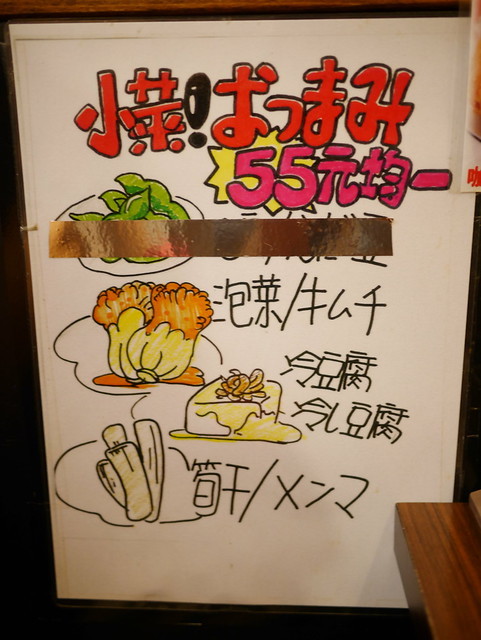 小菜!おつまみ
55元均一
泡菜/キムチ
冷豆腐
冷し豆腐
筍干/メンマ